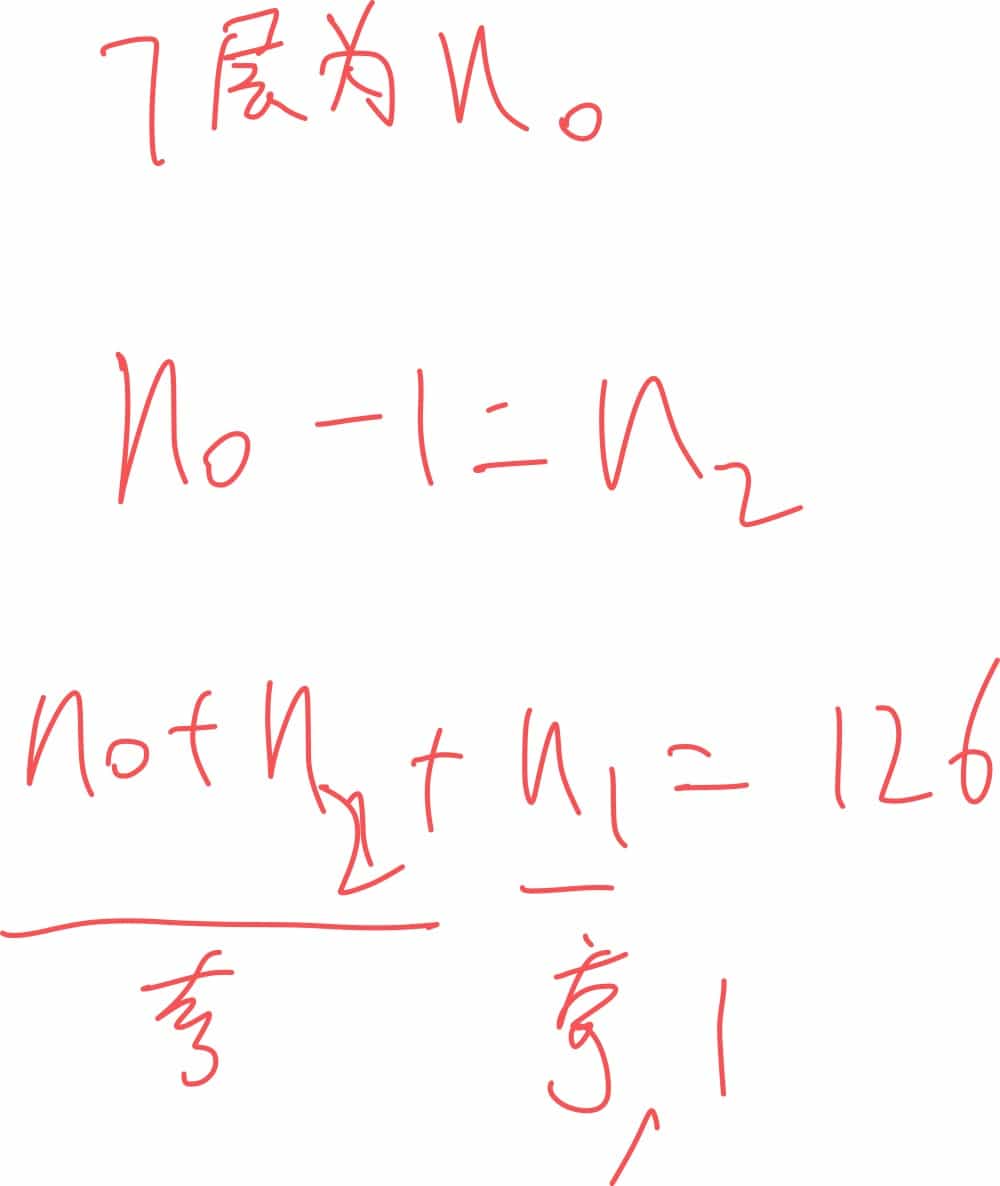 7层为n0
n0-1=n2
n0+n2+n1=126
奇 奇,1